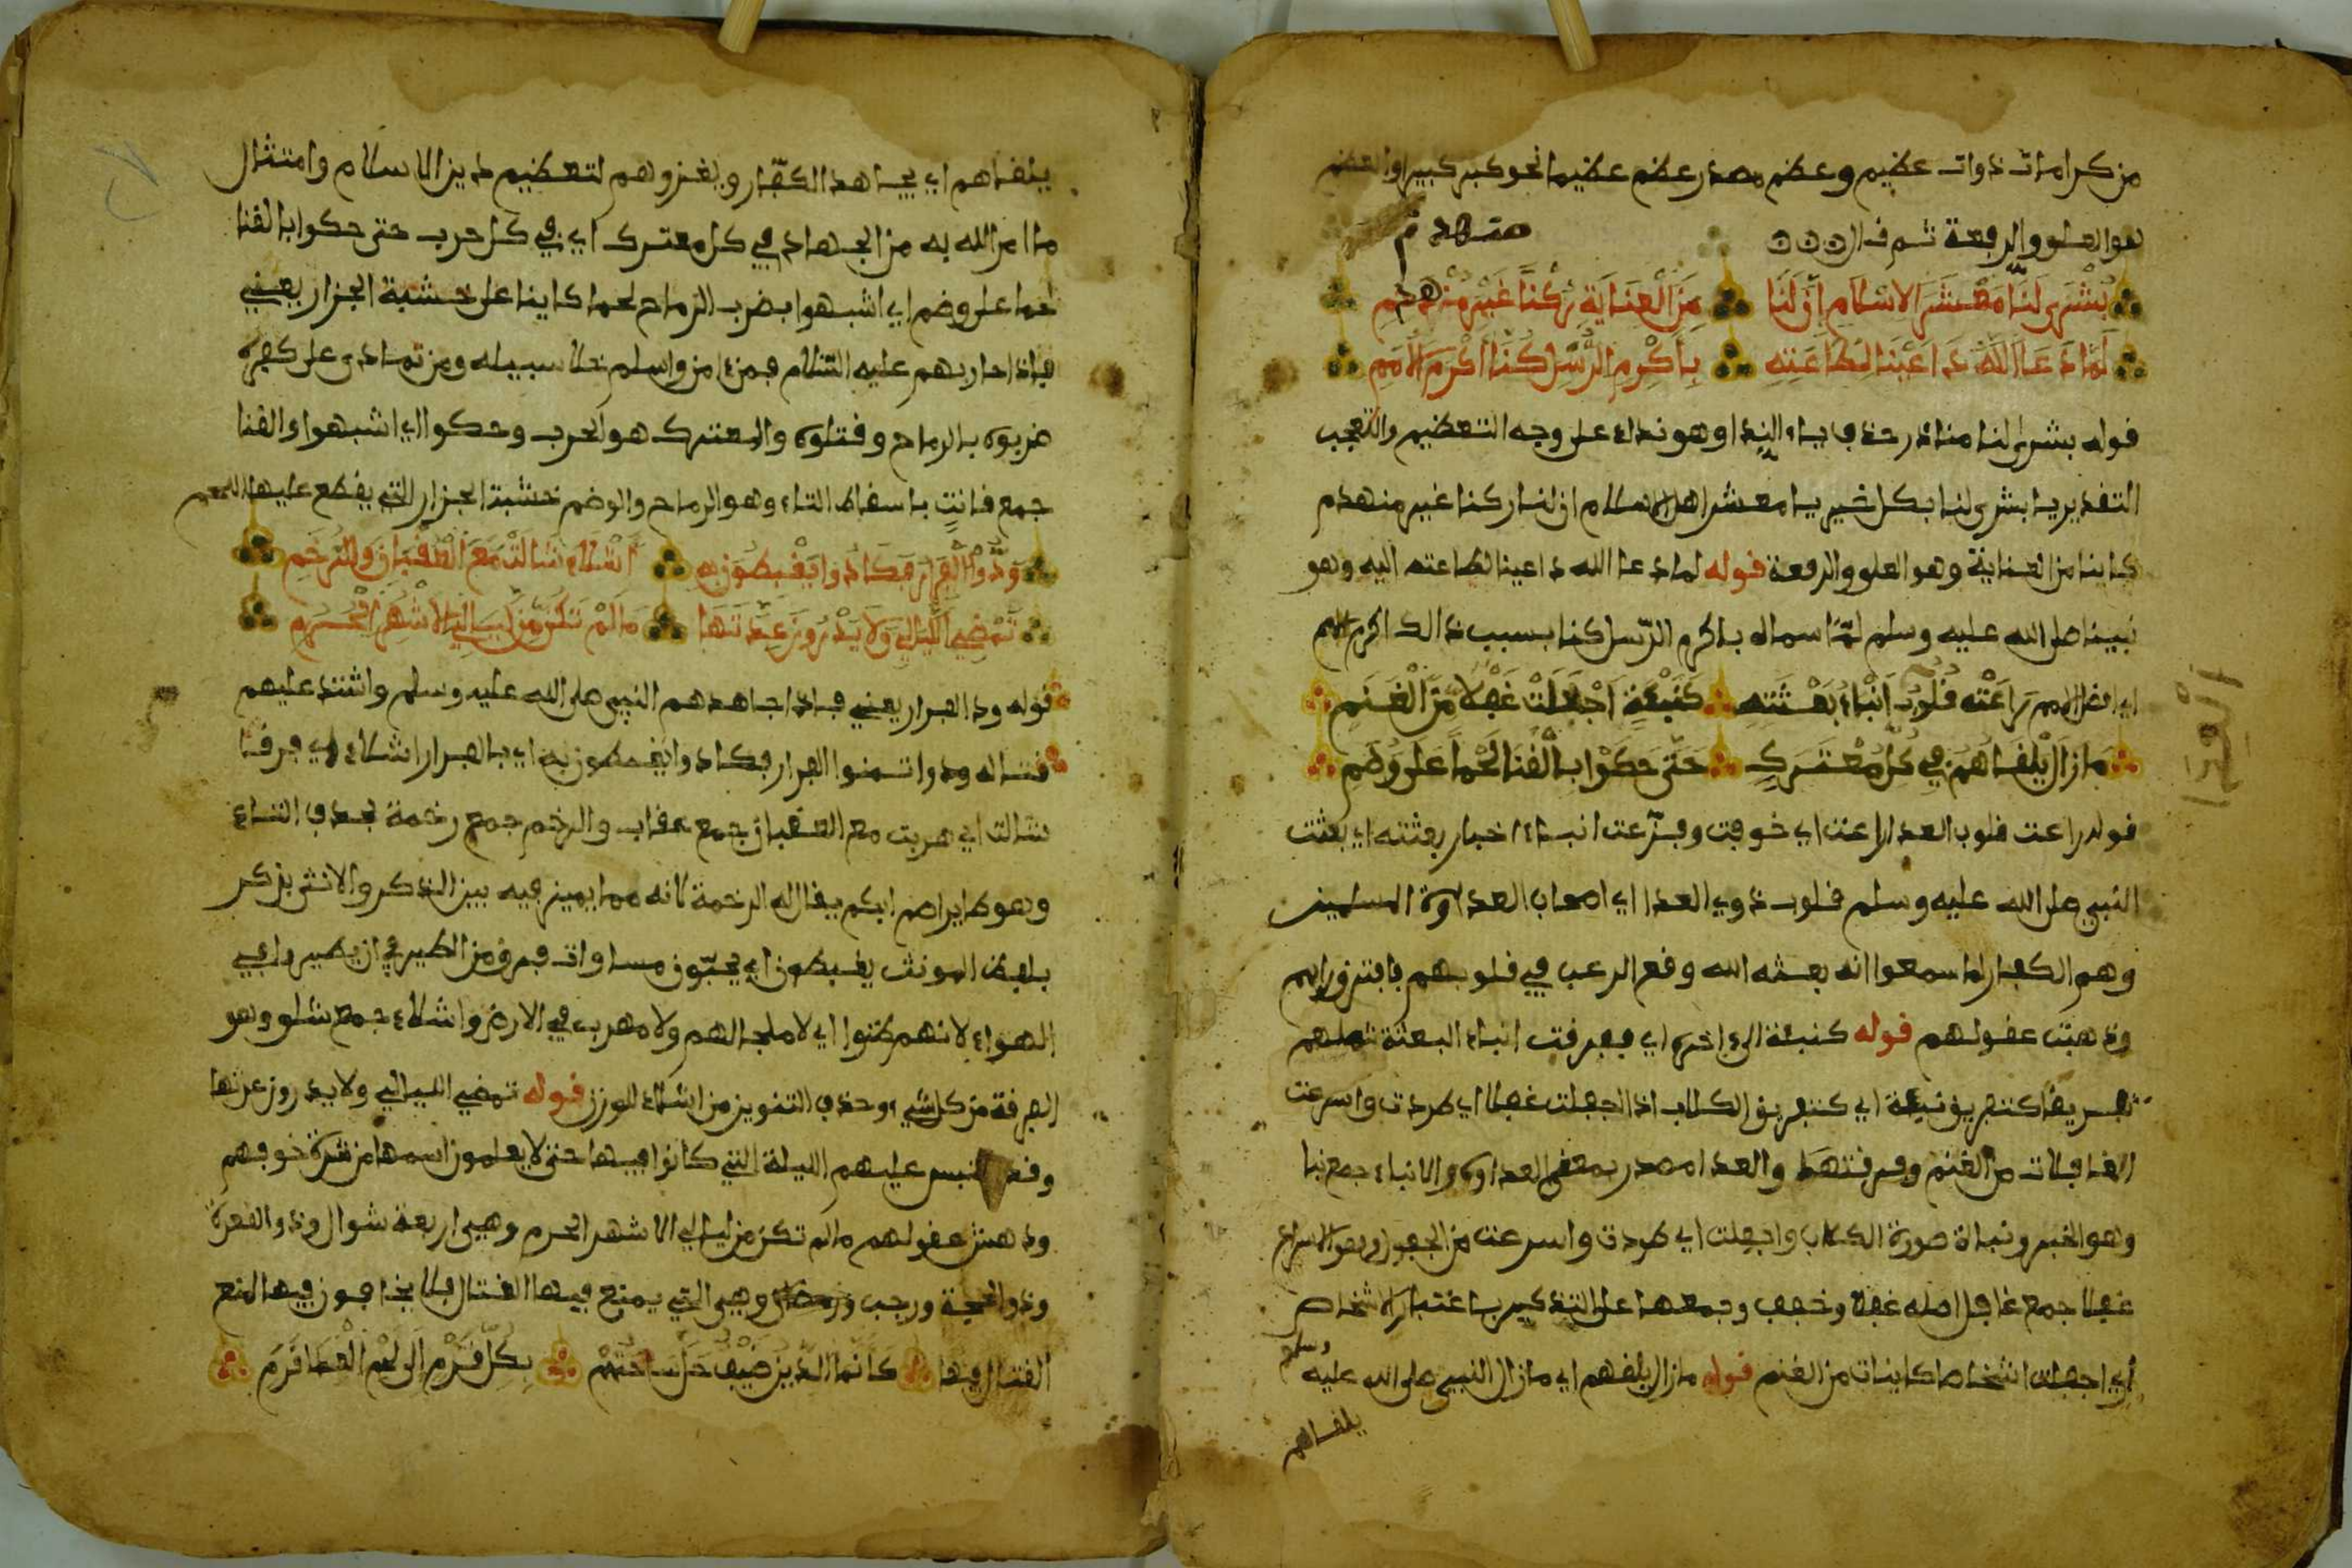 من كرامات ذوات عظيم وعظم مصدر عظم عظيما نحو كبر كبيرا والعظم
هو العلو والرفعة ثم قال
منهدم
بُشْرَى لَنَا مَعْشَرَ الاِسْلَامِ اِنَّ لَنَا مِنَ الْعِنَايَةِ رُكْنًا غَيْرَ مُنْهَدِمِ
لَمَّا دَعَا اللَّهُ دَاعِينَا لِطَاعَتِهِ بِأَكْرَمِ الرُّسْلِ كُنَّا أَكْرَمَ الأُمَمِ
قوله بشرى لنا مناد حذف ياء الندا وهو نداء على وجه التعظيم والتعجب
التقدير يا بشرى لنا بكل خير يا معشر اهل الاسلام ان لنا ركنا غير منهدم
كاينا من العناية وهو العلو والرفعة قوله لما دعا الله داعينا لطاعته اليه وهو
نبينا صلى الله عليه وسلم لمّا سماه باكرم الرّسل كنا بسبب ذالك اكرم الامم
اي افضل الامم رَاعَتْ قُلُوبَ اَنْبَاءُ بَعْثَتِهِ كَنَبْئَةٍ اَجْفَلَتْ غُفْلًا مِّنَ الْغَنَمِ
العدا
مَا زَالَ يَلْقَاهُمُ فِي كُلِّ مُعْتَرَكٍ حَتَّى حَكَوْا بِالْقَنَا لَحْمًا عَلَى وَضَمِ
قوله راعت قلوب العدا راعت اي خوفت وفزّعت انباء اخبار بعثته اي بعثت
النبي صلى الله عليه وسلم قلوب ذوي العدا اي اصحاب العداوة المسلمين
وهم الكفار لما سمعوا انه بعثه الله وقع الرعب في قلوبهم
وذهبت عقولهم قوله كنبئة الى اخره اي ففرقت انباء البعثة شملهم
تفريقا كتفريق نبئة اي كتفريق الكلاب اذا اجفلت غفلا اي طردت واسرعت
الغافلات من الغنم وفرقتها والعدا مصدر بمعنى العداوة والانباء جمع نبا
وهو الخبر ونباة صورة الكلاب واجفلت اي طردت واسرعت من الجفول وهو الاسراع
غفلا جمع غافل اصله غفلا وخفف وجمعها على التذكير باعتبار الاشخاص
أي اجفلت اشخاصا كاينات من الغنم قوله ما زال يلقهم اي ما زال النبي صلى الله عليه وسلم
يلقاهم
يلقاهم اي يجاهد الكفّار ويغزوهم لتعظيم دين الاسلام وامتثال
ما امر الله به من الجهاد في كل معترك اي في كل حرب حتى حكوا بالقنا
لحما على وضم اي اشبهوا بضرب الرماح لحما كاينا على خشبة الجزار يعني
فاذا حاربهم عليه السلام فمن ءامن واسلم خلا سبيله ومن تمادى على كفره
ضربوه بالرماح وقتلوه والمعترك هو الحرب وحكوا اي اشبهوا والقنا
جمع قانت باسقاط التاء وهو الرماح والوضم خشبة الجزار التي يقطع عليها اللحم
وَدُّوا الْفِرَارَ فَكَادُوا يَغْبِطُونَ بِهِ اَشْلَاءَ شَالَتْ مَعَ الْعِقْبَانِ وَالرَّخَمِ
تَمْضِي اللَّيَالِي وَلَا يَدْرُونَ عِدَّتَهَا مَا لَمْ تَكُنْ مِّنْ لَيَالِي الاَشْهُرِ الْحُرُمِ
قوله ودوا الفرار يعني فاذا جاهدهم النبي صلى الله عليه وسلم واشتد عليهم
قتاله ودوا تمنوا الفرار فكادوا يغبطون به اي بالفرار اشلاء اي فرقا
شالت اي هربت مع العقبان جمع عقاب والرخم جمع رخمة بحذف التاء
وهو طاير اصم ابكم يقال له الرخمة لانه مما يميز فيه بين الذكر والانثى يذكر
بلفظ المونث يغبطون اي يحبّون مساوات فرق من الطير في ان يطيروا في
الهواء لانهم ظنوا اي لا ملجا لهم ولا مهرب في الارض واشلاء جمع شلو وهو
الفرقة من كل شيء وحذف التنوين من اشلاء للوزن قوله تمضي الليالي ولا يدرون عدتها
وقد التبس عليهم الليلة التي كانوا فيها حتى لا يعلمون اسمها من شدة خوفهم
ودهش عقولهم ما لم تكن من ليالي الاشهر الحرم وهي اربعة شوال وذو القعدة
وذو الحجة ورجب وهي التي يمنع فيها القتال فلا يخافون فيها لمنع
القتال فيها كَأَنَّمَا الدِّينُ ضَيْفٌ حَلَّ سَاحَتَهُمْ بِكُلِّ قَرْمٍ اِلَى لَحْمِ الْعِدَا قَرِمِ